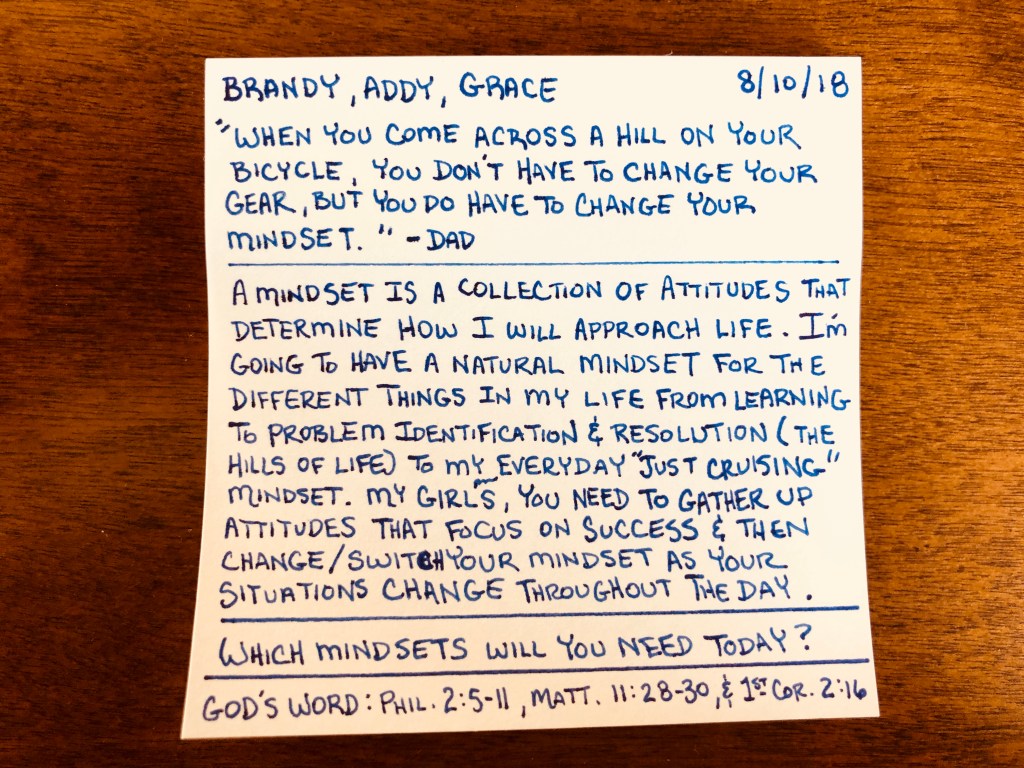 BRANDY, ADDY, GRACE 8/10/18
"WHEN YOU COME ACROSS A HILL ON YOUR
BICYCLE, YOU DON'T HAVE TO CHANGE YOUR
GEAR, BUT YOU DO HAVE TO CHANGE YOUR
MINDSET." -DAD
A MINDSET IS A COLLECTION OF ATTITUDES THAT
DETERMINE HOW I WILL APPROACH LIFE. I'M
GOING TO HAVE A NATURAL MINDSET FOR THE
DIFFERENT THINGS IN MY LIFE FROM LEARNING
TO PROBLEM IDENTIFICATION & RESOLUTION (THE
HILLS OF LIFE) TO MY EVERYDAY "JUST CRUISING"
MINDSET. MY GIRLS, YOU NEED TO GATHER UP
ATTITUDES THAT FOCUS ON SUCCESS & THEN
CHANGE/SWITCH YOUR MINDSET AS YOUR
SITUATIONS CHANGE THROUGHOUT THE DAY.
WHICH MINDSETS WILL YOU NEED TODAY?
GOD'S WORD: PHIL. 2:5-11, MATT. 11:28-30, & 1ST COR. 2:16